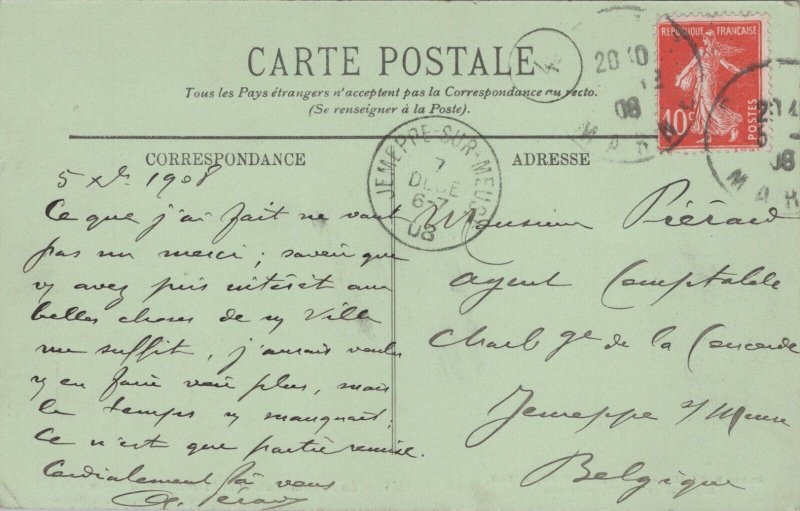 CARTE POSTALE
Tous les Pays étrangers n'acceptent pas la Correspondance au recto.
(Se renseigner à la Poste).
4
20 40
12
08
RÉPUBLIQUE FRANÇAISE
10c
POSTES
20 4
5
08
MAR
JEMEPPE-SUR-MEUSE
7
DECE
6-7
08
CORRESPONDANCE
5 Xbre 1908
Ce que j'ai fait ne vaut
pas un merci ; savoir que
v/ avez pris intérêt aux
belles choses de n/ Ville
me suffit, j'aurais voulu
v/ en faire voir plus, mais
le temps n/ manquait,
ce n'est que partie remise.
Cordialement à vous
ADRESSE
Monsieur Piérard
agent Comptable
Charb ge de la Concorde
Jemeppe s/ Meuse
Belgique